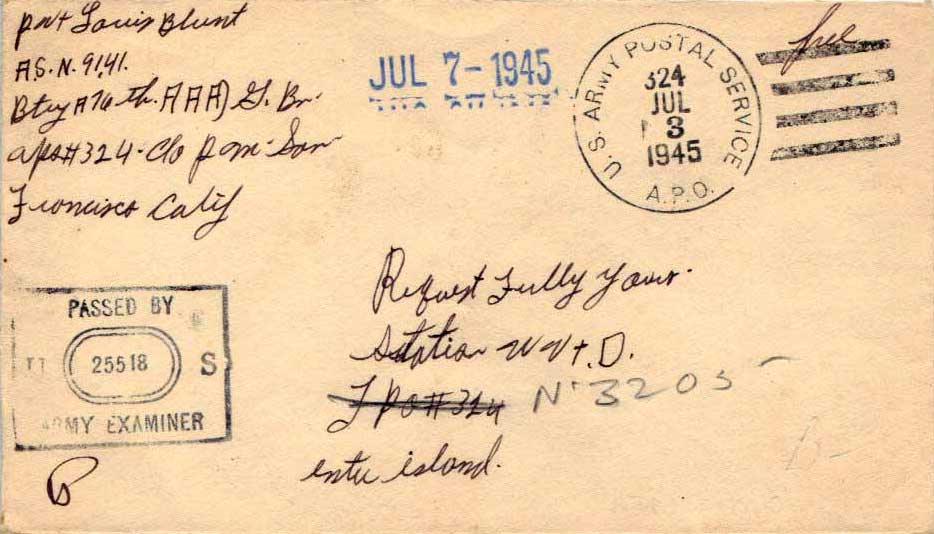 Pvt Louis Blunt
A.S.N. 9141.
Btry A 76th. AAA) G. Bn.
apo#324-C/o P.M. San
Francisco Calif
JUL 7-1945
U.S. ARMY POSTAL SERVICE
324
JUL
3
1945
A.P.O.
free
Request Fully Yours
Station W V T D.
F P O # 324 N° 3205
entu island.
PASSED BY
25518
S
ARMY EXAMINER
B